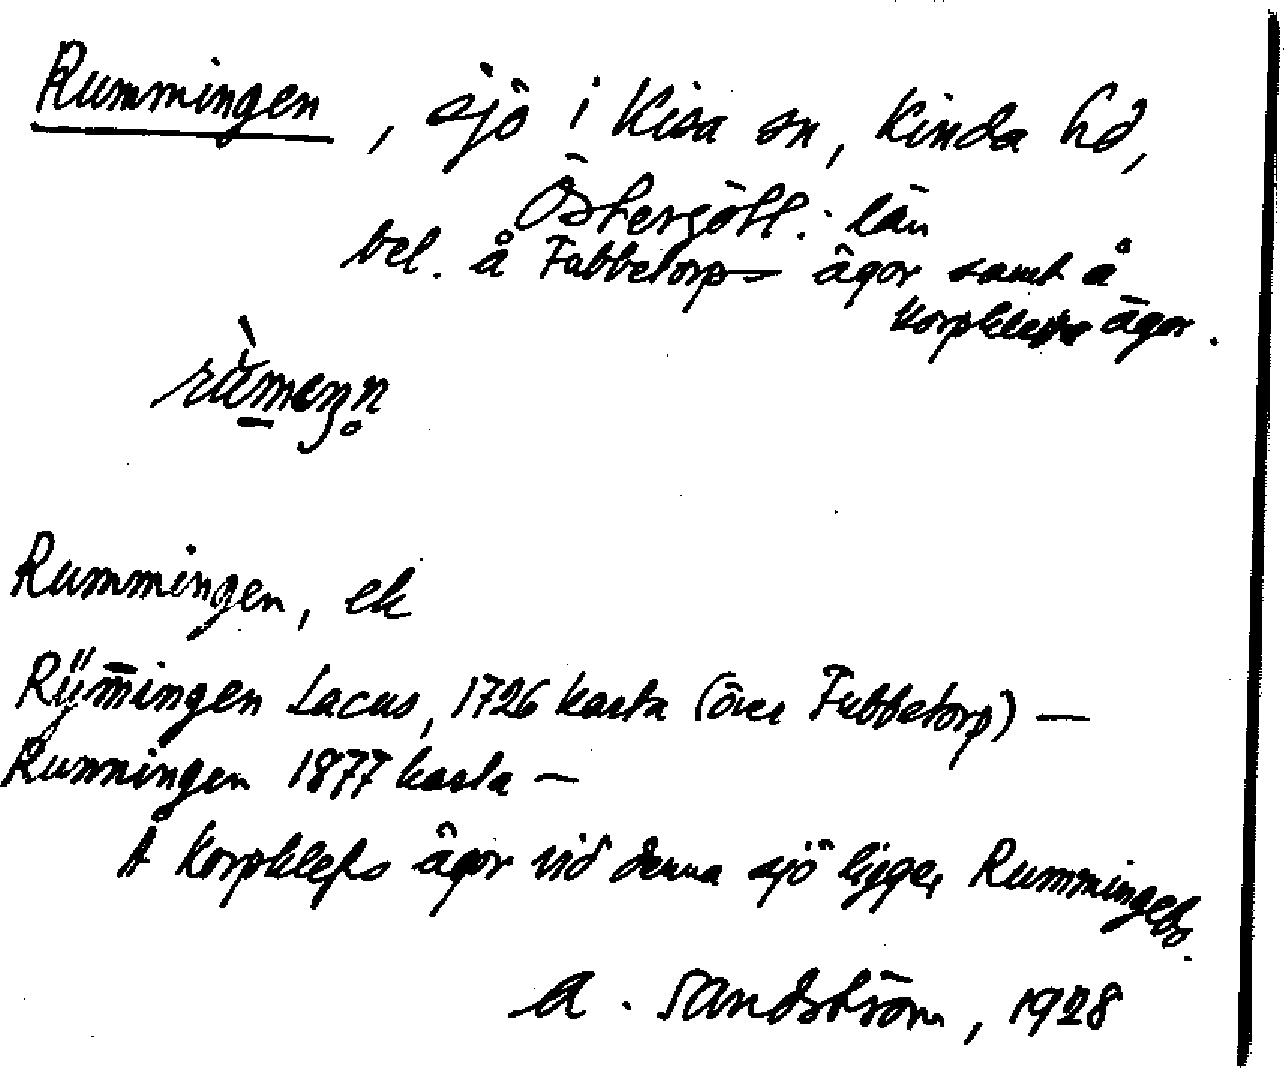 Rummingen, sjö i Kisa sn, Kinda hd,
Östergötl. län
bel. å Fubbetorps ägor samt å
Korpklefs ägor.
Rummingen, ek
Rÿm̄ingen Lacus, 1726 karta (över Fubbetorp) —
Rumningen 1877 karta —
Å Korpklefs ägor vid denna sjö ligger Rummingebo.
A. Sandström, 1928